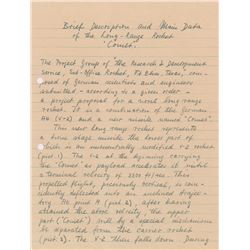 Brief Description and Main Data
of the Long-Range Rocket
"Comet."
The Project Group of the Research & Development
Service, Sub-Office Rocket, Ft. Bliss, Texas, com-
posed of German scientists and engineers
submitted - according to a given order -
a project proposal for a novel long range
rocket. It is a combination of the German
A4 (V-2) and a new missile named "Comet".
This new long range rocket represents
a two stage missile the lower part of
which is an unessentially modified V-2 rocket
(pict. 1). The V-2 at the beginning carrying
the "Comet" as payload accelerates it until
a terminal velocity of
propelled flight, previously vertical, is con-
siderably deflected into an inclined trajec-
tory at point A (pict. 2), after having
attained the above velocity, the upper
part ("Comet") will by a special mechanism
be separated from the carrier rocket
(pict. 3). The V-2 then falls down. During